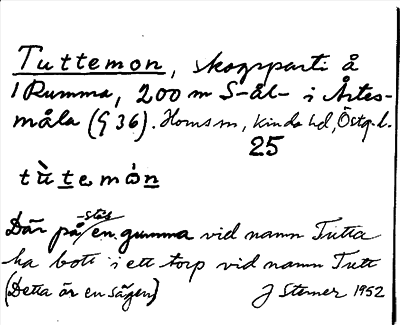 Tuttemon, skogsparti å
1 Rumma, 200 m S-ål- i Årtes-
måla (G 36). Horns sn, Kinda hd, Östg. l.
25
tù te mòn
Där på stås en gumma vid namn Tutta
ha bott i ett torp vid namn Tutt
(Detta är en sägen) J Sterner 1952